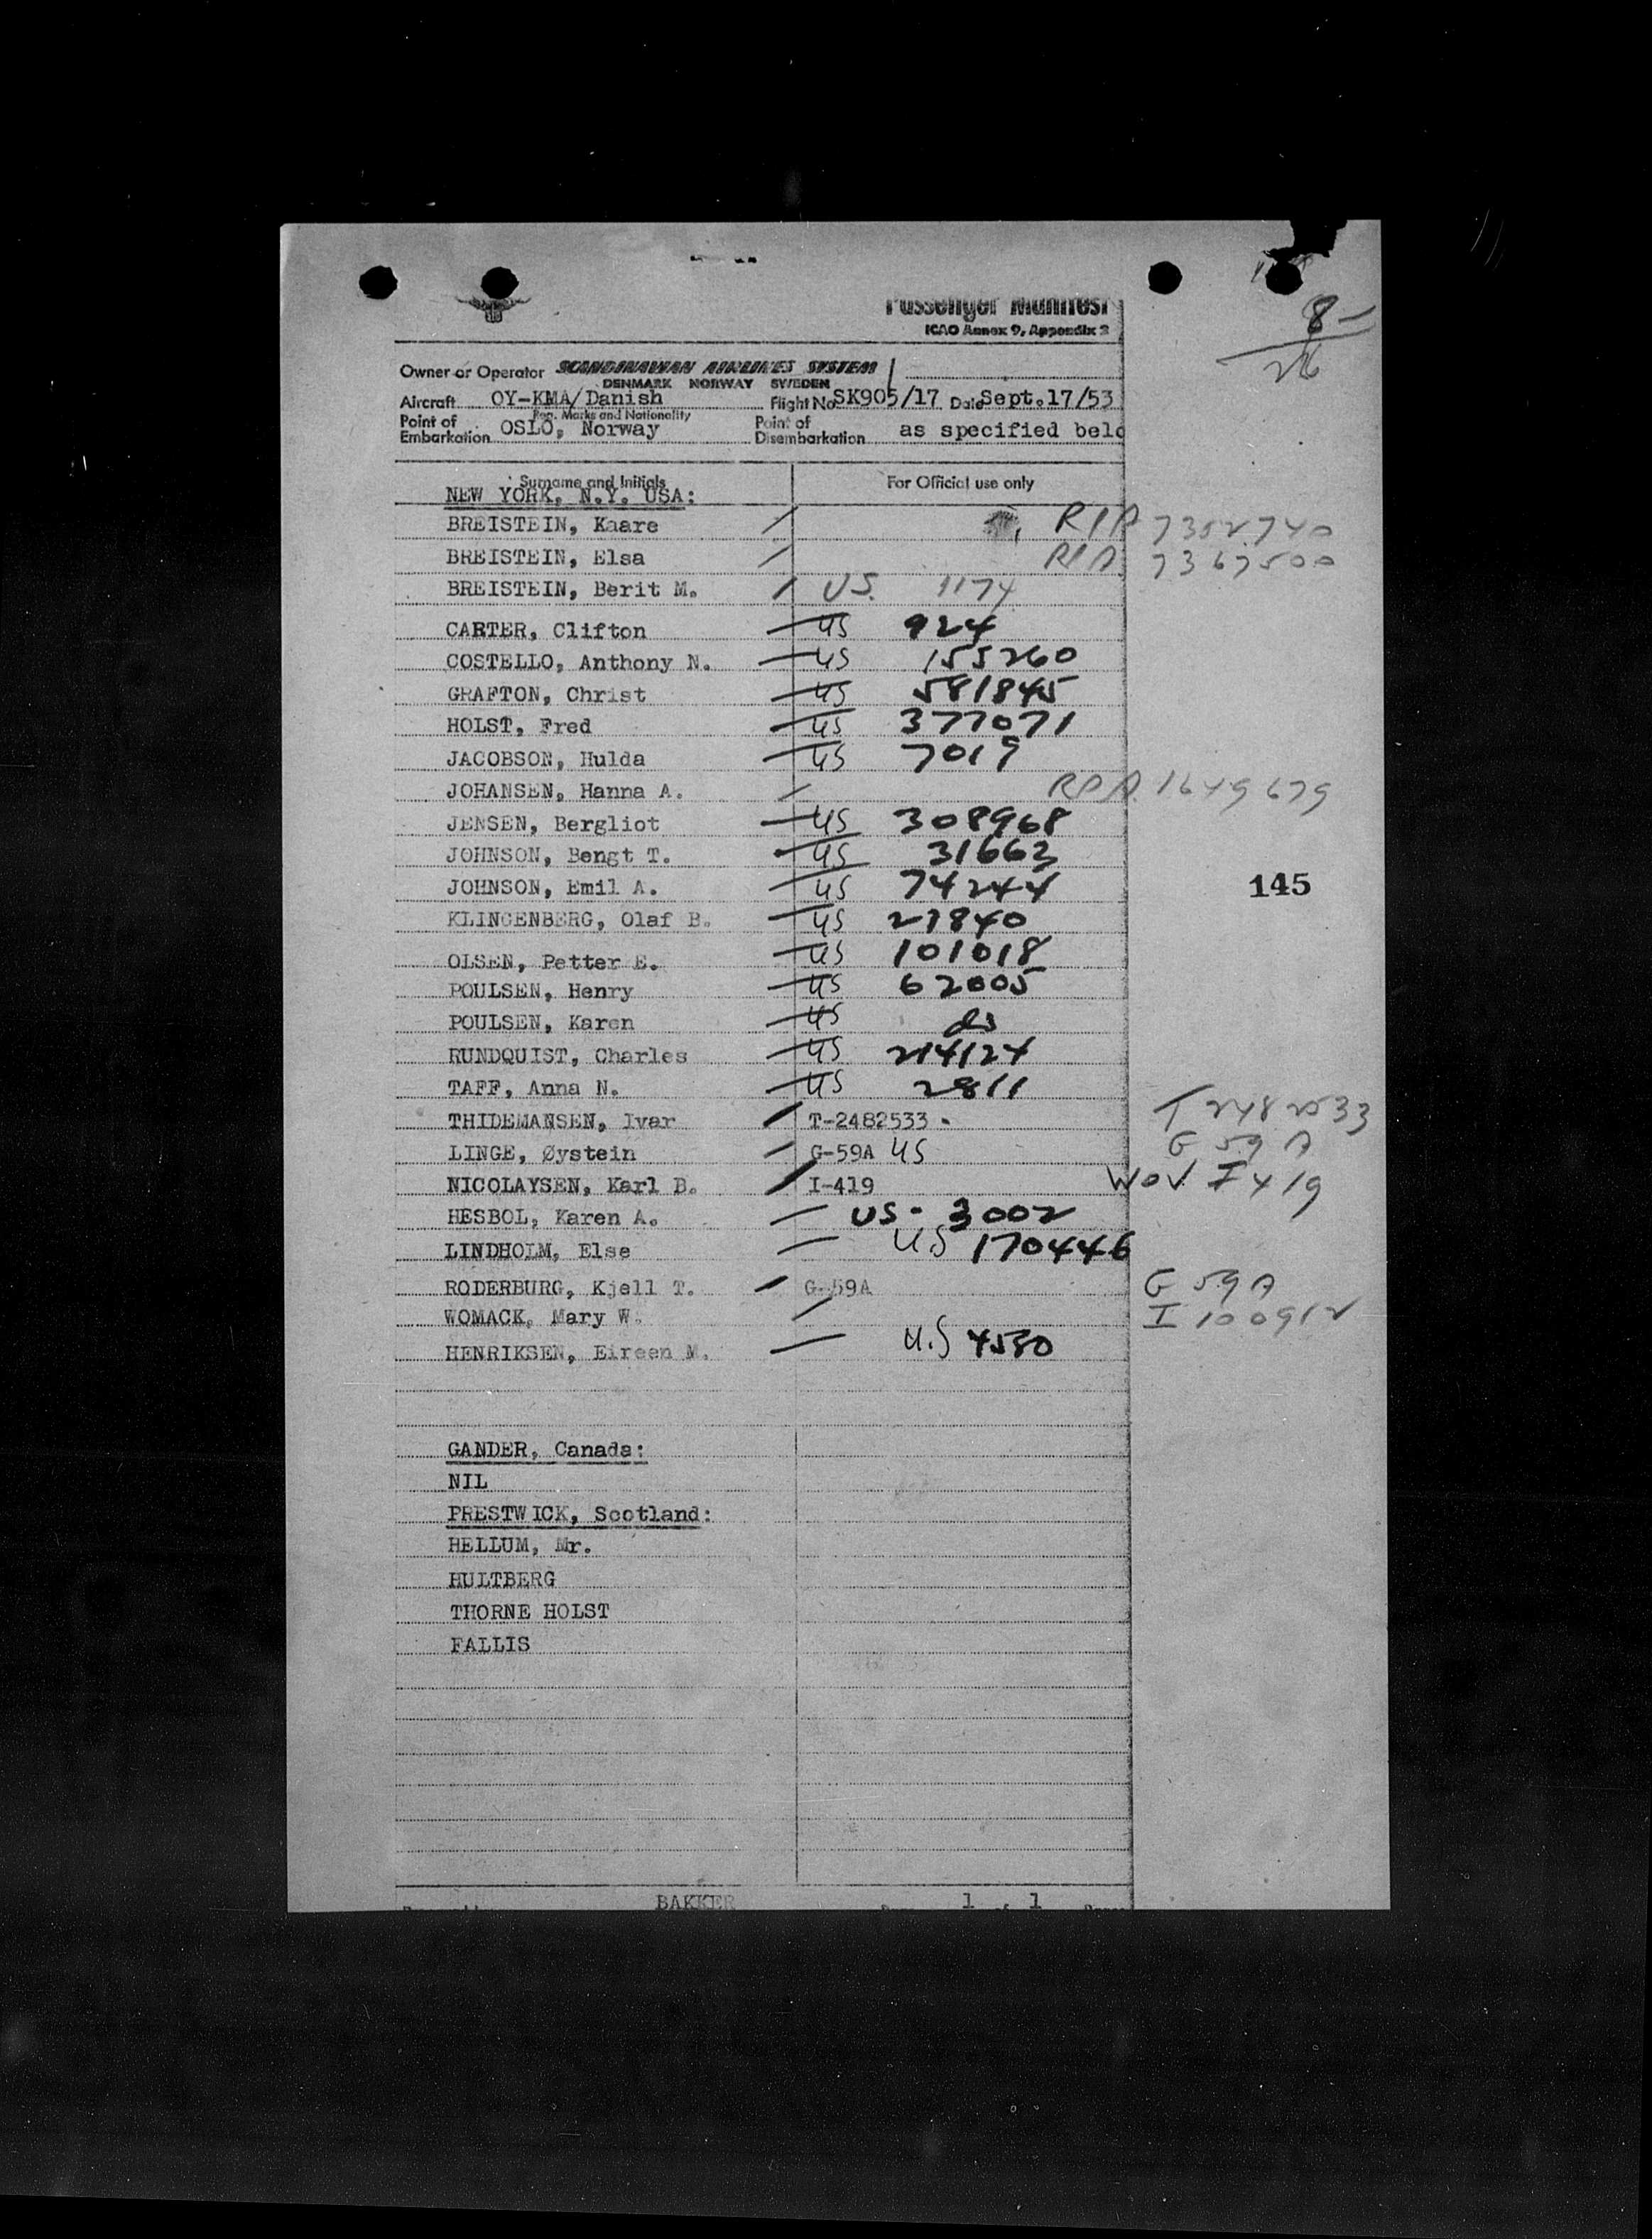 Passenger Manifest
ICAO Annex 9, Appendix 2
8-
26
Owner or Operator SCANDINAVIAN AIRLINES SYSTEM
DENMARK NORWAY SWEDEN
Aircraft OY-KMA/Danish Flight No SK905/17 Date Sept.17/53
Reg. Marks and Nationality
Point of Embarkation OSLO, Norway Point of Disembarkation as specified belo
Surname and Initials For Official use only
NEW YORK, N.Y. USA:
BREISTEIN, Kaare RPA 7352740
BREISTEIN, Elsa RPA 7367500
BREISTEIN, Berit M. US. 1174
CARTER, Clifton US 924
COSTELLO, Anthony N. US 155260
GRAFTON, Christ US 581845
HOLST, Fred US 377071
JACOBSON, Hulda US 7019
JOHANSEN, Hanna A. RPA 1649679
JENSEN, Bergliot US 308968
JOHNSON, Bengt T. US 31663
JOHNSON, Emil A. US 74244
145
KLINGENBERG, Olaf B. US 27840
OLSEN, Petter E. US 101018
POULSEN, Henry US 62005
POULSEN, Karen US do
RUNDQUIST, Charles US 214124
TAFF, Anna N. US 2811
THIDEMANSEN, Ivar T-2482533 T 2482533
LINGE, Øystein G-59A US G 59 A
NICOLAYSEN, Karl B. I-419 WOV I 419
HESBOL, Karen A. US - 3002
LINDHOLM, Else U.S 170446
RODERBURG, Kjell T. G-59A G 59 A
WOMACK, Mary W. I 100912
HENRIKSEN, Eireen M. U.S 4580
GANDER, Canada:
NIL
PRESTWICK, Scotland:
HELLUM, Mr.
HULTBERG
THORNE HOLST
FALLIS
BAKKER 1 of 1